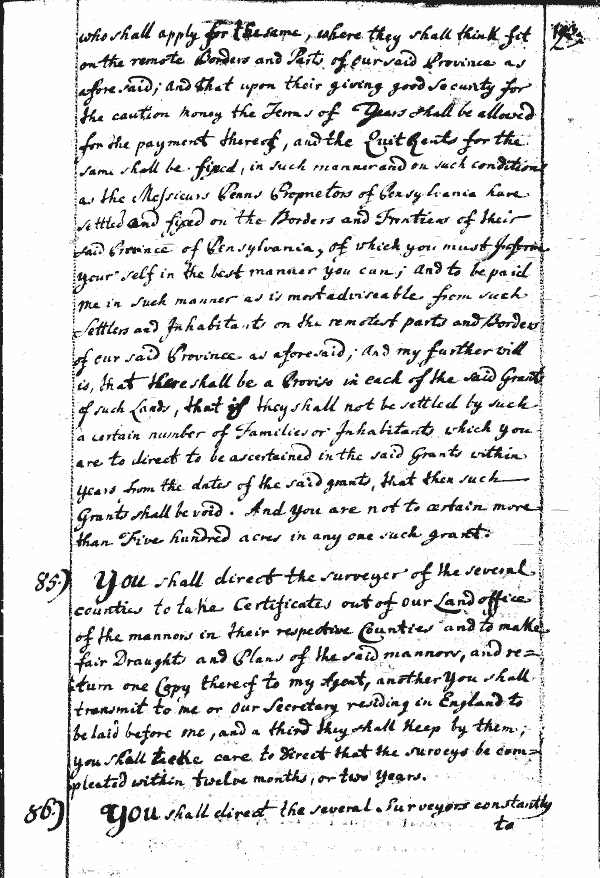 who shall apply for the same, where they shall think fit
on the remote Borders and Parts of our said Province as
afore said; and that upon their giving good security for
the caution money the Terms of Years shall be allowed
for the payment thereof, and the Quit Rents for the
same shall be fixed, in such manner and on such conditions
as the Messieurs Penns Proprietors of Pensylvania have
settled and fixed on the Borders and Frontiers of their
said Province of Pensylvania, of which you must Inform
your self in the best manner you can; and to be paid
me in such manner as is most adviseable from such
Settlers and Inhabitants on the remotest parts and Borders
of our said Province as aforesaid; And my further will
is, that there shall be a Proviso in each of the said Grants
of such Lands, that if they shall not be settled by such
a certain number of Families or Inhabitants which you
are to direct to be ascertained in the said Grants within
years from the dates of the said grants, that then such
Grants shall be void. And you are not to certain more
than Five hundred acres in any one such grant.
85) You shall direct the surveyor of the several
counties to take Certificates out of our Land office
of the mannors in their respective Counties and to make
fair Draughts and Plans of the said mannors, and re=
turn one Copy thereof to my Agent, another You shall
transmit to me or our Secretary residing in England to
be laid before me, and a third they shall keep by them;
you shall take care to Direct that the surveys be com=
pleated within twelve months, or two Years.
86) You shall direct the several Surveyors constantly
to